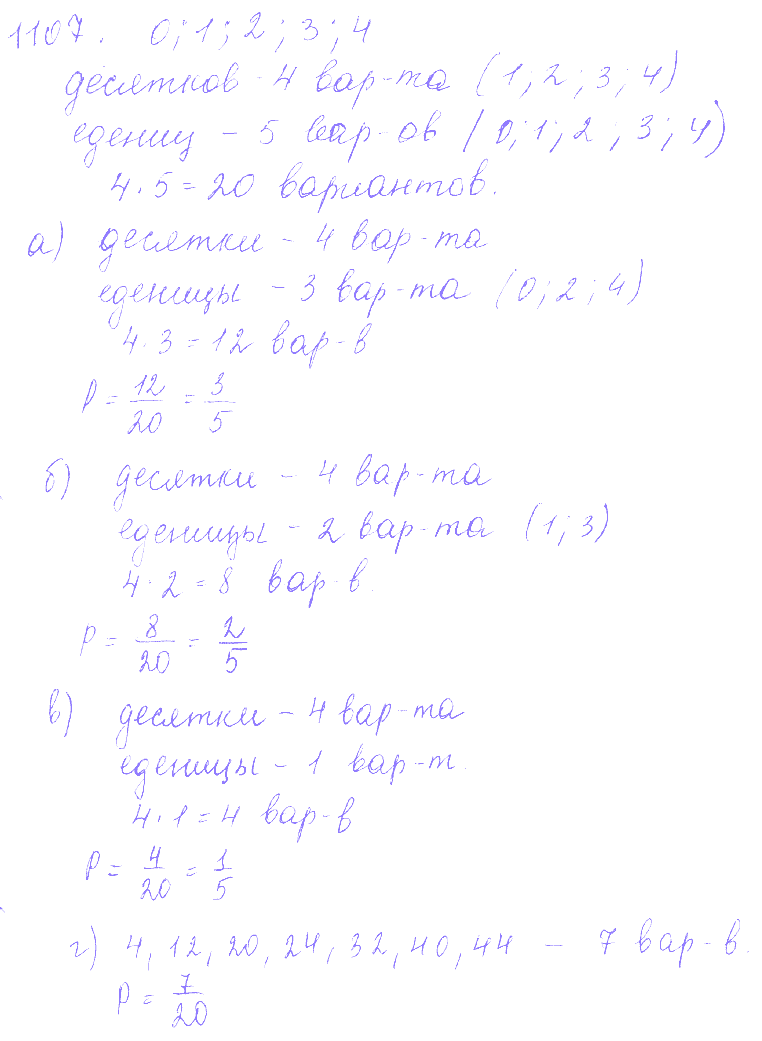 1107. 0; 1; 2; 3; 4
десятков - 4 вар-та (1; 2; 3; 4)
едениц - 5 вар-ов (0; 1; 2; 3; 4)
4 · 5 = 20 вариантов.
а) десятки - 4 вар-та
еденицы - 3 вар-та (0; 2; 4)
4 · 3 = 12 вар-в
P = 12/20 = 3/5
б) десятки - 4 вар-та
еденицы - 2 вар-та (1; 3)
4 · 2 = 8 вар-в.
P = 8/20 = 2/5
в) десятки - 4 вар-та
еденицы - 1 вар-т.
4 · 1 = 4 вар-в
P = 4/20 = 1/5
г) 4, 12, 20, 24, 32, 40, 44 - 7 вар-в.
P = 7/20